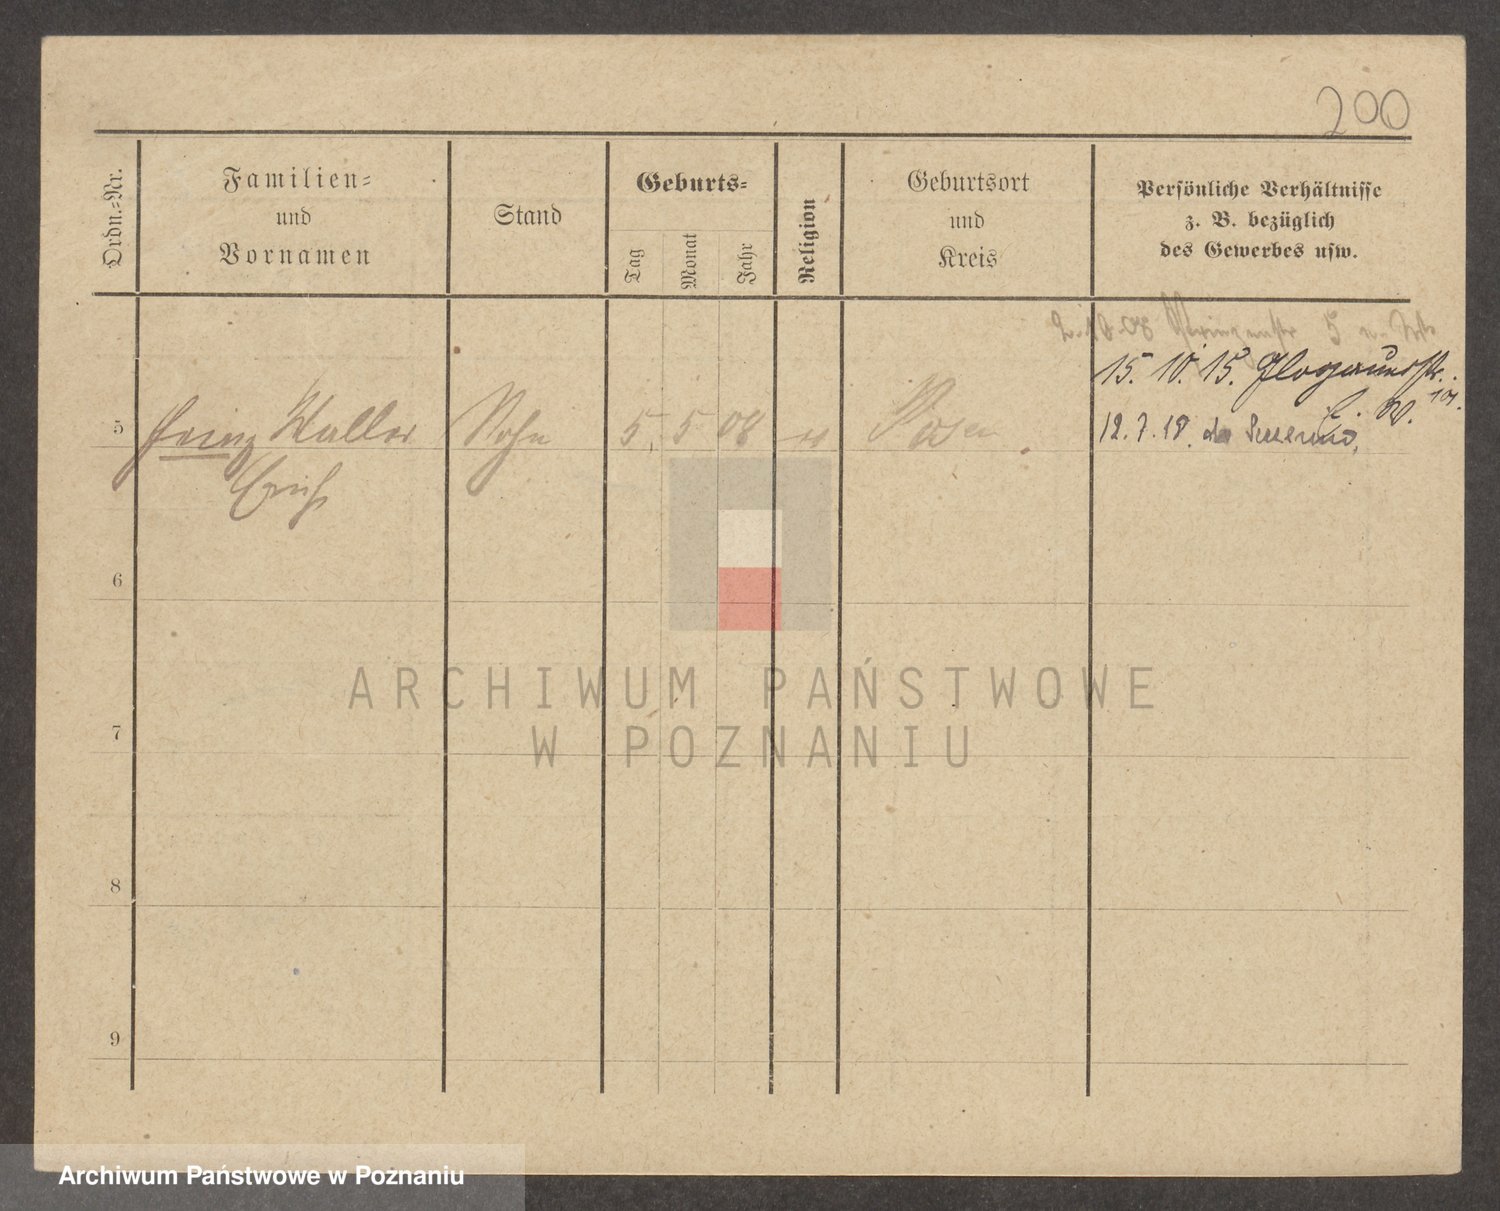 200
Ordn.-Nr.
Familien-
und
Vornamen
Stand
Geburts-
Tag
Monat
Jahr
Religion
Geburtsort
und
Kreis
Persönliche Verhältnisse
z. B. bezüglich
des Gewerbes usw.
15. 10. 15.
5 Walter Sohn 5. 5 08 Posen
12. 7. 18.
Erich
6
7
8
9
ARCHIWUM PAŃSTWOWE
W POZNANIU
Archiwum Państwowe w Poznaniu